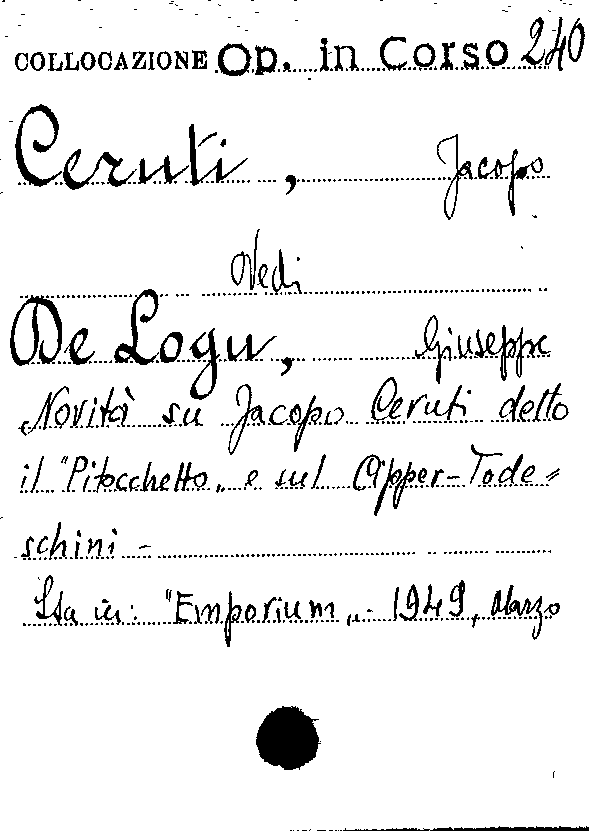 COLLOCAZIONE Op. in Corso 240
Ceruti, Jacopo
Vedi
De Logu, Giuseppe
Novità su Jacopo Ceruti detto
il "Pitocchetto" e sul Cipper-Tode=
schini -
Sta in: "Emporium". 1949, Marzo